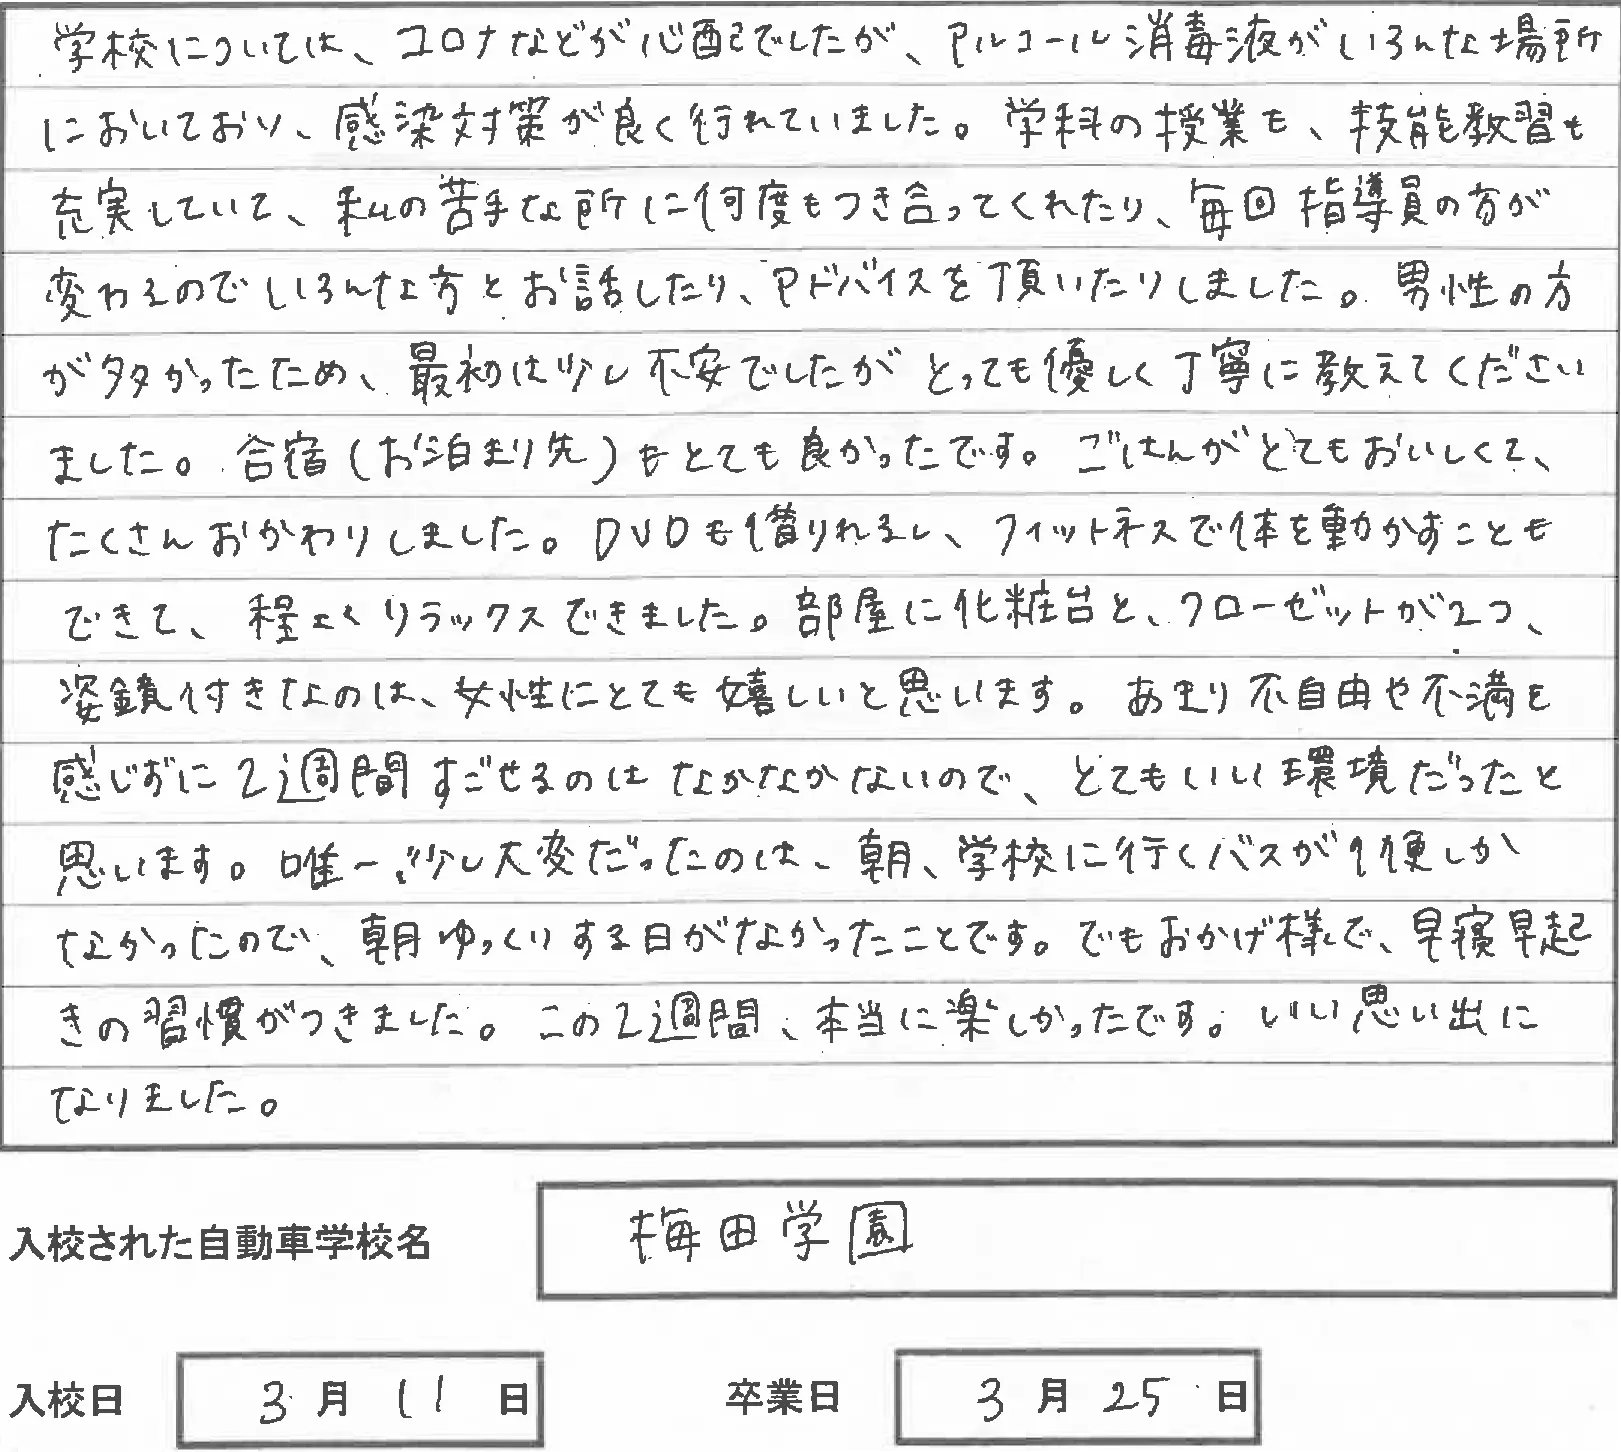 学校については、コロナなどが心配でしたが、アルコール消毒液がいろんな場所
においており、感染対策が良く行れていました。学科の授業も、技能教習も
充実していて、私の苦手な所に何度もつき合ってくれたり、毎回指導員の方が
変わるのでいろんな方とお話したり、アドバイスを頂いたりしました。男性の方
が多かったため、最初は少し不安でしたがとっても優しく丁寧に教えてください
ました。合宿(お泊まり先)もとても良かったです。ごはんがとてもおいしくて、
たくさんおかわりしました。DVDも借りれるし、フィットネスで体を動かすことも
できて、程よくリラックスできました。部屋に化粧台と、クローゼットが2つ、
姿鏡付きなのは、女性にとても嬉しいと思います。あまり不自由や不満を
感じずに2週間すごせるのはなかなかないので、とてもいい環境だったと
思います。唯一少し大変だったのは、朝、学校に行くバスが1便しか
なかったので、朝ゆっくりする日がなかったことです。でもおかげ様で、早寝早起
きの習慣がつきました。この2週間、本当に楽しかったです。いい思い出に
なりました。
入校された自動車学校名 梅田学園
入校日 3月11日 卒業日 3月25日